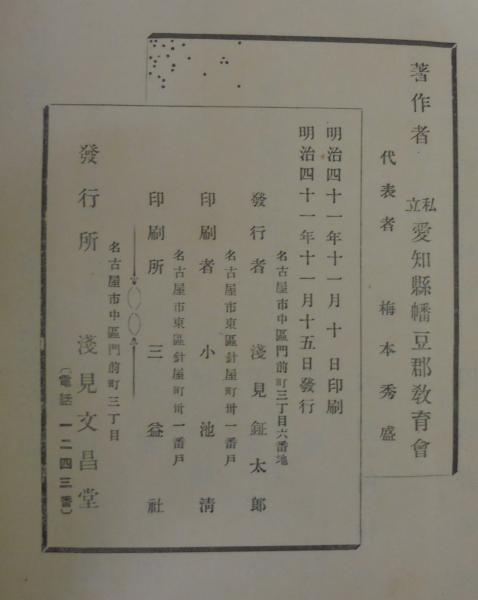 著作者 私立 愛知縣幡豆郡教育會
代表者 梅本秀盛
明治四十一年十一月十日印刷
明治四十一年十一月十五日發行
名古屋市中區門前町三丁目六番地
發行者 淺見鉦太郎
名古屋市東區針屋町卅一番戸
印刷者 小池清
名古屋市東區針屋町卅一番戸
印刷所 三益社
名古屋市中區門前町三丁目
發行所 淺見文昌堂
(電話一二四三番)